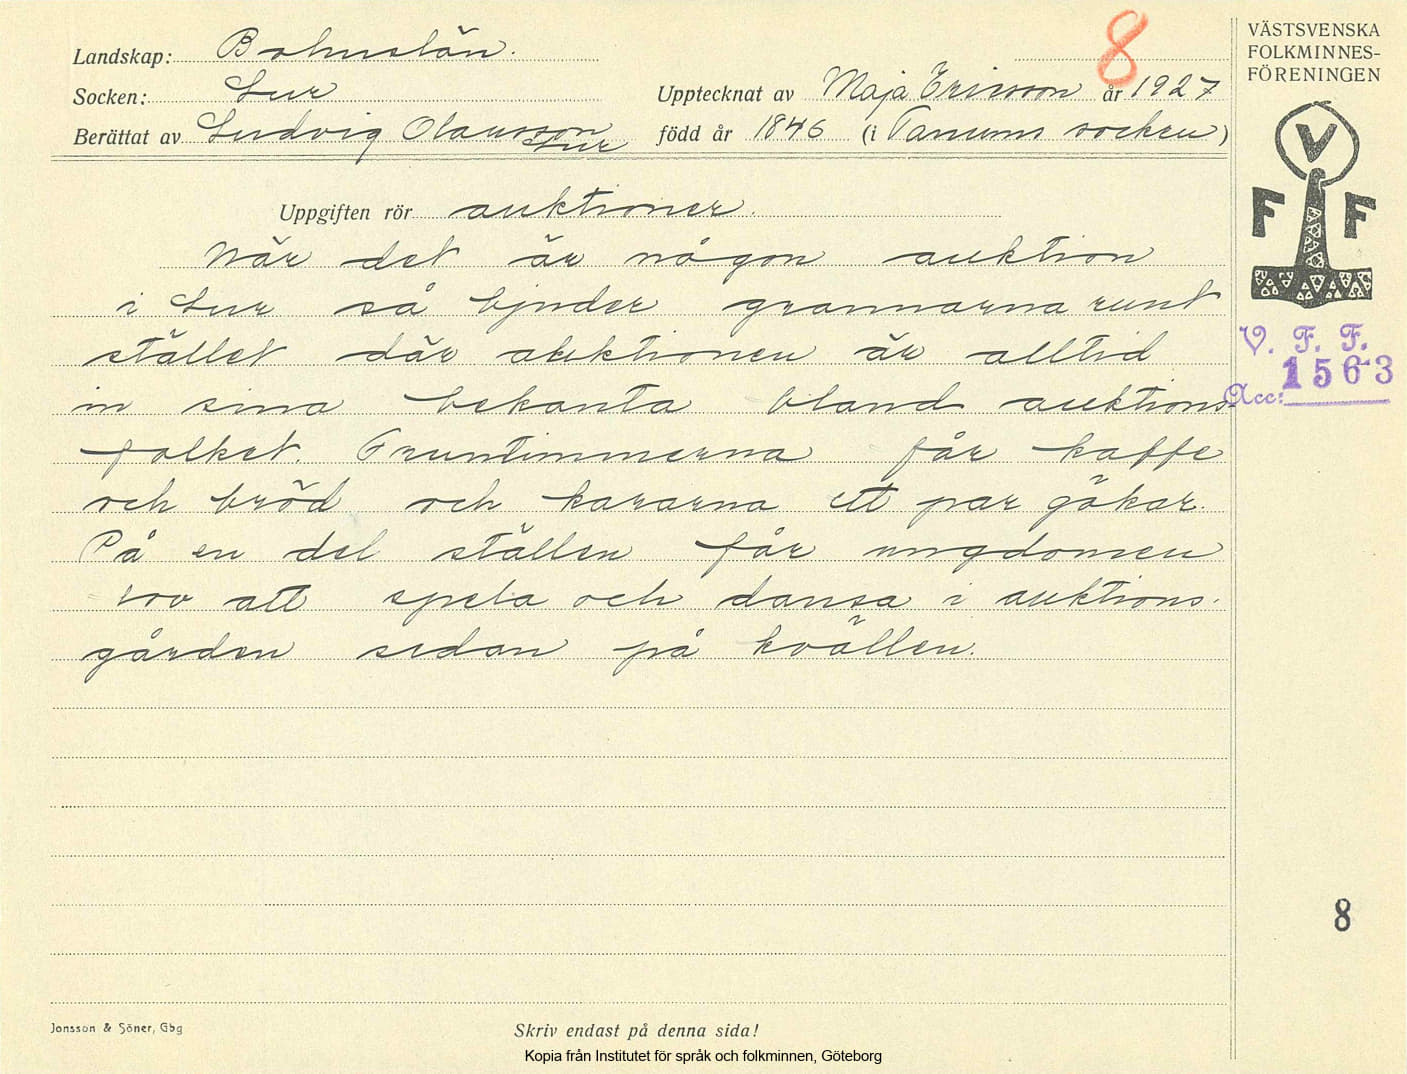 8
Landskap: Bohuslän.
Socken: Lur
Upptecknat av Maja Ericsson år 1927
Berättat av Ludvig Olausson
Lur
född år 1846 (i Tanums socken)
Uppgiften rör auktioner.
När det är någon auktion
i Lur så bjuder grannarna runt
stället där auktionen är alltid
in sina bekanta bland auktions-
folket. Fruntimmerna får kaffe
och bröd och kararna ett par gökar.
På en del ställen får ungdomen
lov att spela och dansa i auktions-
gården sedan på kvällen.
VÄSTSVENSKA
FOLKMINNES-
FÖRENINGEN
V
F F
V. F. F.
1563
Acc:
8
Jonsson & Söner, Gbg
Skriv endast på denna sida!
Kopia från Institutet för språk och folkminnen, Göteborg